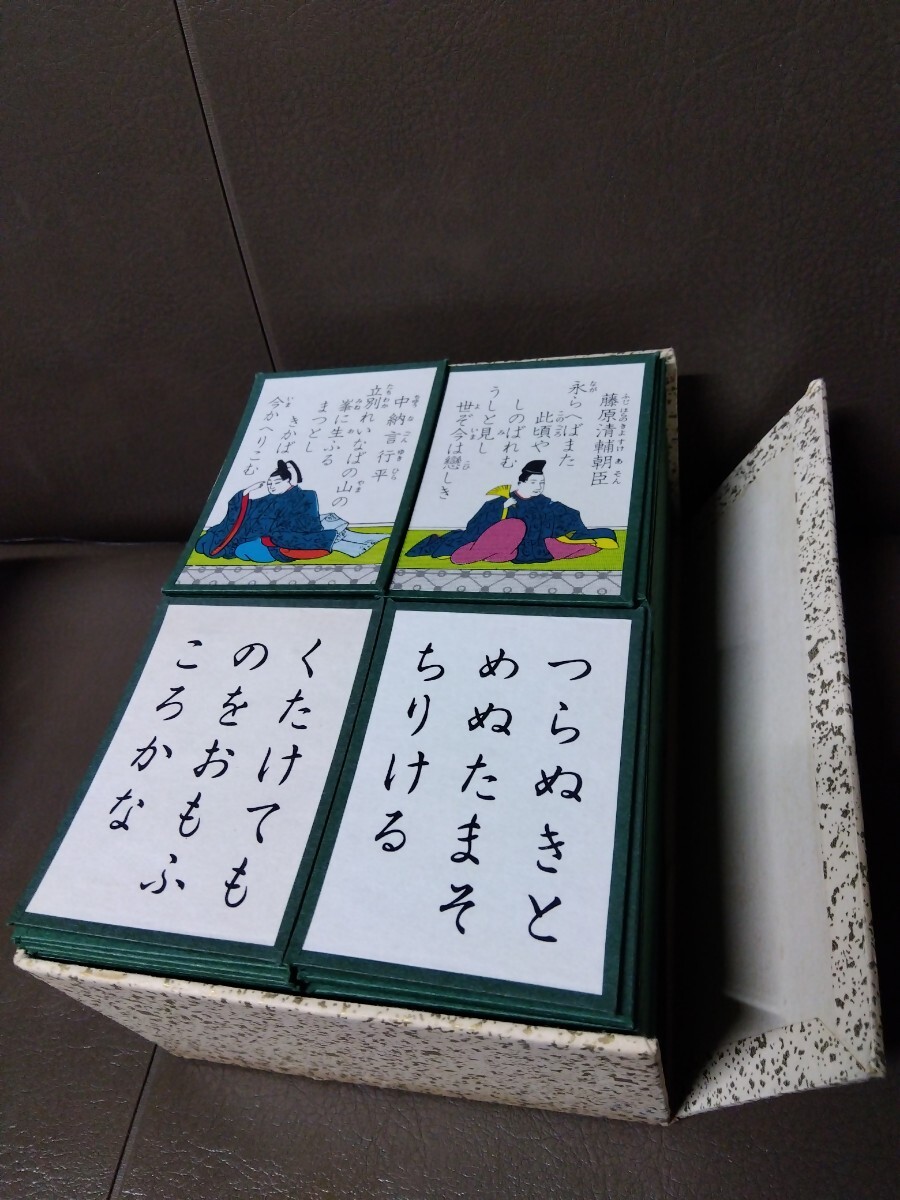 藤原清輔朝臣
永らへばまた
此頃や
しのばれむ
うしと見し
世ぞ今は戀しき
中納言行平
立別れいなばの山の
峯に生ふる
まつとし
きかば
今かへりこむ
つらぬきと
めぬたまそ
ちりける
くたけても
のをおもふ
ころかな